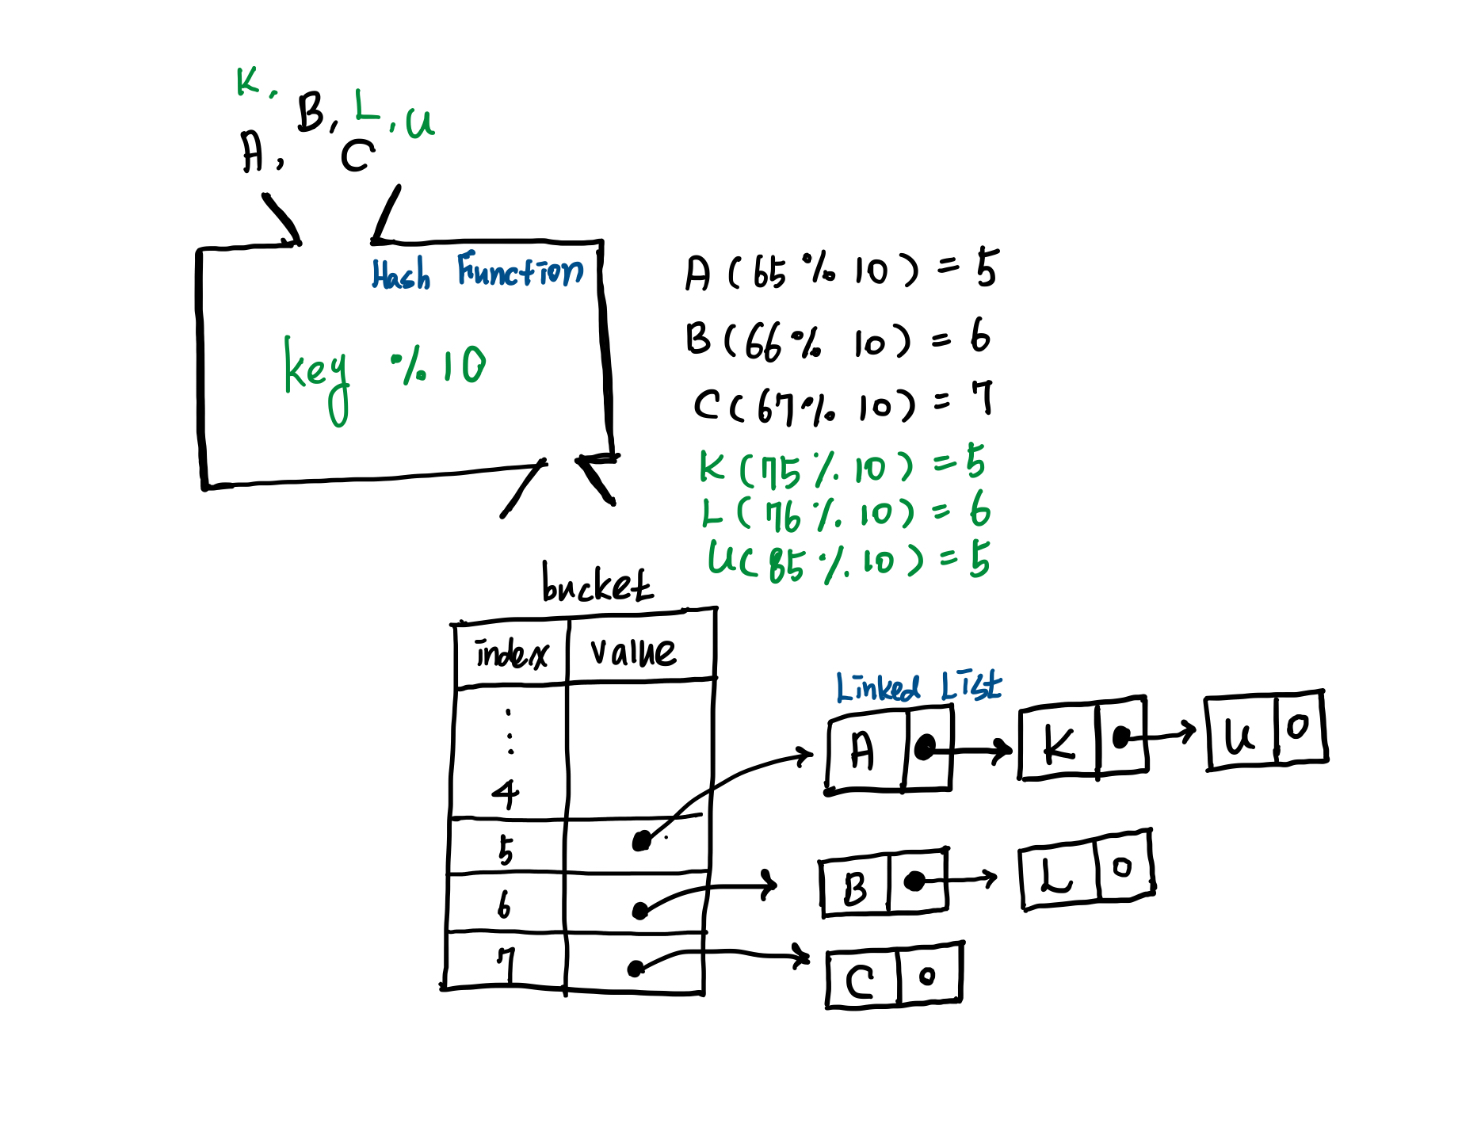 K.
B, L, U
A, C
Hash Function
key % 10
A (65 % 10) = 5
B (66 % 10) = 6
C (67 % 10) = 7
K (75 % 10) = 5
L (76 % 10) = 6
U (85 % 10) = 5
bucket
index value
⋮
4
5
6
7
Linked List
A K U 0
B L 0
C 0